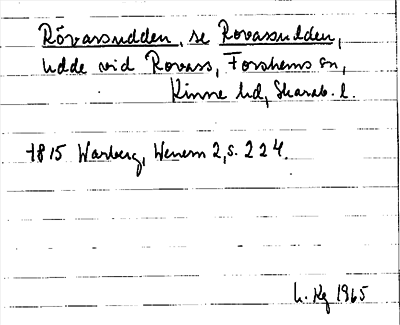 Rövarsudden, se Rovassudden,
udde vid Rovass, Forshems sn,
Kinne hd, Skarab. l.
1815 Warberg, Wenern 2, s. 224.
1965